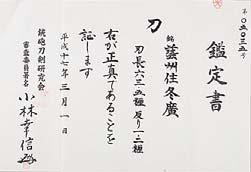 第〇五〇三五号
鑑定書
刀 銘 藝州住冬廣
刃長六三・五糎 反り一・二糎
右が正真であることを
証します
平成十七年三月一日
銃砲刀剣研究会
審査委員署名
小林幸信